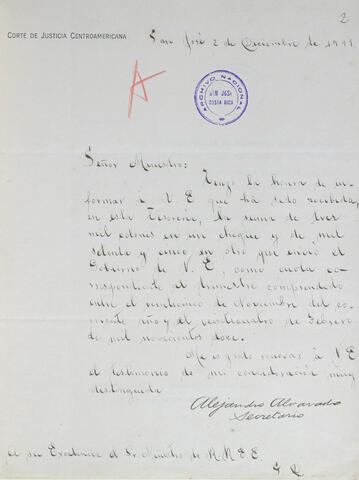 2
CORTE DE JUSTICIA CENTROAMERICANA
San José 2 de Diciembre de 1911
A
ARCHIVO NACIONAL
SAN JOSE
COSTA RICA
Señor Ministro:
Tengo la honra de in-
formar á V. E. que ha sido recibida,
en esta Tesorería, la suma de tres
mil colones en un cheque y de mil
setenta y cinco en otro que envió el
Gobierno de V. E., como cuota co-
rrespondiente al trimestre comprendido
entre el veinticinco de Noviembre del co-
rriente año y el veinticuatro de Febrero
de mil novecientos doce.
Me es grato renovar á V E
el testimonio de mi consideración muy
distinguida
Alejandro Alvarado
Secretario
A su Excelencia el Sr Ministro de R.R.E.E.